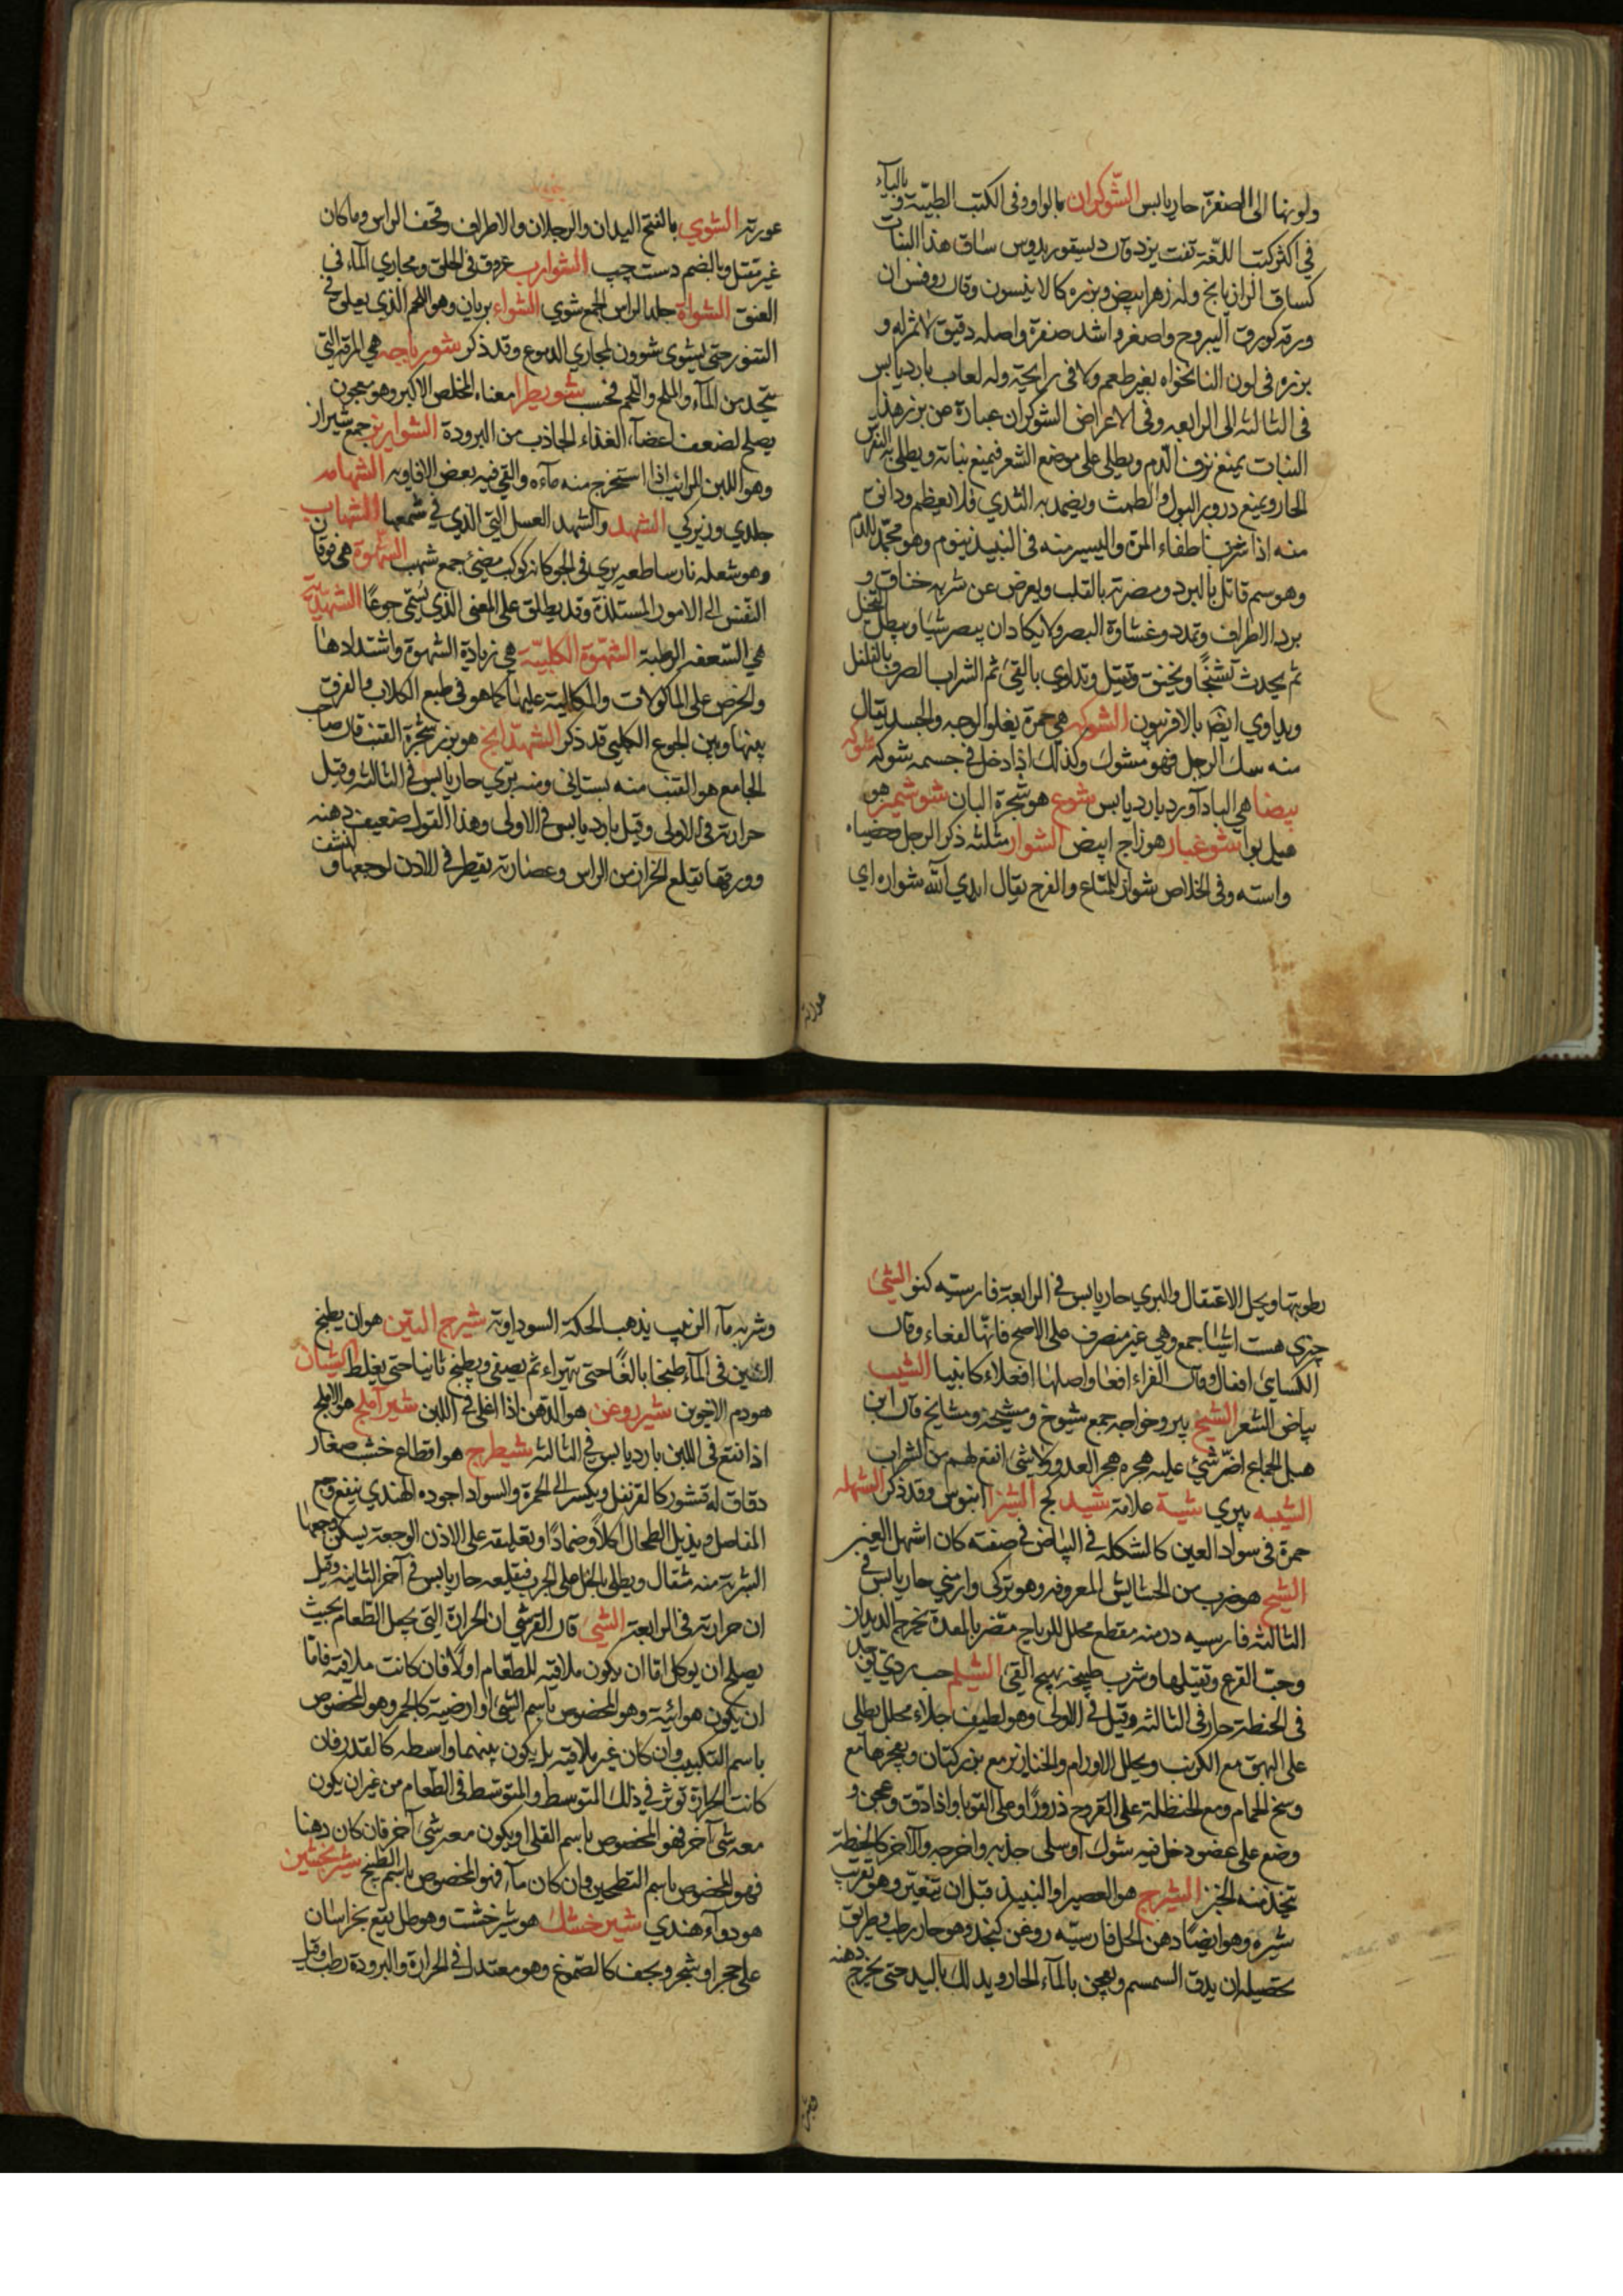 ولونها الى الصفرة حار يابس الشوكران بالواو وفى الكتب الطبيّة وبالياء
في اكثر كتب اللغة تفت يزد وقال ديسقوريدوس ساق هذا النبات
كساق الرازيانج وله زهر ابيض وبزره كالانيسون وقال روفس ان
ورقه كورق اليبروح واصغر واشد صفرة واصله دقيق لا ثمر له و
بزره فى لون النانخواه بغير طعم ولا فى رايحة وله لعاب بارد يابس
فى الثالثه الى الرابعه وفى الاعراض الشوكران عبارة عن بزر هذا
النبات يمنع نزف الدم ويطلى على موضع الشعر فيمنع نباته ويطلى به النقرس
الحار ويمنع درور البول والطمث ويضمد به الثدي فلا يعظم ودانق
منه اذا شرب اطفاء المرة واليسير منه فى النبيذ ينوم وهو مجمد للدم
وهو سم قاتل بالبرد ومضرته بالقلب ويعرض عن شربه خناق و
برد الاطراف وتمدد وغشاوة البصر ولا يكاد ان يبصر شيا ويبطل التخيل
ثم يحدث تشنجًا ويخنق وقتيل وتداوي بالقيء ثم الشراب الصرف بالفلفل
ويداوي ايضا بالافربيون الشوكه هي حمرة يعلو الوجه والجسد يقال
منه سك الرجل فهو مشوك وكذلك اذا دخل فى جسمه شوكه شوكه
بيضا هي الباداورد بارد يابس شوع هو شجرة البان شوشمير هو
هيل بوا شوغبار هو زاج ابيض الشوار مثلثه ذكر الرجل وخصياه
واسته وفى الخلاص شوار للمتاع والفرج يقال ابدي الله شواره اي
عورته
عورته الشوي بالفتح اليدان والرجلان والاطراف وقحف الراس وماكان
غير مقتل وبالضم دست چپ الشوارب عروق فى الحلق ومجاري الماء في
العنق الشواة جلد الراس الجمع شوي الشواء بريان وهو اللحم الذي يعلق في
التنور حتى يشوى شوون لمجاري الدموع وقد ذكر شورباجه هي المرقة التي
يتخد من المآء والملح واللحم فحسب شويطرا معناه المخلص الاكبر وهو معجون
يصلح لضعف اعضآء الغذاء الحادث من البرودة الشواريز جمع شيراز
وهو اللبن الرائب اذا استخرج منه مآءه والقي فيه بعض الافاويه الشهامه
جلدي وزيركي الشهد والشهد العسل التي الذي في شمعها الشهاب
وهو شعله نار ساطعه يرى فى الجو كانه كوكب مضئ جمع شهب الشهوة هي توقان
النفس الى الامور المستلذة وقد يطلق على المعنى الذي يسمى جوعًا الشهدية
هي السعفه الرطبة الشهوة الكلبيّة هي زيادة الشهوة واشتدادها
والحرص على الماكولات والمكالبة عليها كما هو فى طبع الكلاب والفرق
بينها وبين الجوع الكلبي قد ذكر الشهدانج هو بزر شجرة القنب قال صاحب
الجامع هو القنب منه بستاني ومنه برّي حار يابس فى الثالثه وقيل
حرارته فى الاولى وقيل بارد يابس فى الاولى وهذا القول ضعيف دهنه
وورقها يقلع الحزاز من الراس وعصارته يقطر فى الاذن لوجعها و تنشف
رطوبتها ويحل الاعتقال والبري حار يابس فى الرابعة فارسيته كنو الشئ
چيزى هست اشيا جمع وهي غير منصرف على الاصح فانها لفعاء وقال
الكسايى افعال وقال الفراء افعا واصلها افعلاء كانبيا الشيب
بياض الشعر الشيخ پير وخواجه جمع شيوخ ومشيخه ومشايخ قال ابن
هبل الجماع اضر شئ عليه هجره هجر العدو ولا شئ انفع لهم من الشراب
الشيبه پيرى شية علامة شيد كچ الشيزا ابنوس وقد ذكر الشهله
حمرة فى سواد العين كالشكله فى البياض فى صفته كان اشهل العين
الشيح هو ضرب من الحشايش المعروفه وهو تركى وارمني حار يابس في
الثالثه فارسيه درمنه مقطع محلل للرياح مضر بالمعدة يخرج الديدان
وحب القرع وقتيلها وشرب طبيخه يهيج القئ الشيلم حب ردي يوجد
فى الحنطة حار فى الثالثه وقيل فى الاولى وهو لطيف جلاء محلل يطلى
على البهق مع الكبريت ويحلل الاورام والخنازير مع بزر كتان ويفجرها مع
وسخ الحمام ومع الحنظلة على القروح ذرورًا وعلى القوبا واذا دق وعجن و
وضع على عضو دخل فيه شوك او سلى جذبه واخرجه والآخر كالحنطة
يتخذ منه الخبز الشيرج هو العصير او النبيذ قبل ان يتغير وهو تعريب
شيره وهو ايضًا دهن الحل فارسيّه روغن كنجد وهو حار رطب وطريق
تحصيله ان يدق السمسم ويعجن بالمآء الحار ويدلك باليد حتى يخرج دهنه
وشربه مآء الزبيب يذهب الحكة السوداوية شيرج التين هو ان يطبخ
التين فى المآء طبخًا بالغًا حتى يتهراء ثم يصفى ويطبخ ثانيا حتى يغلظ الشيان
هو دم الاخوين شيرروغن هو الدهن اذا اغلي فى اللبن شيراملج هو الاملج
اذا نقع فى اللبن بارد يابس فى الثالثه شيطرج هو اقطاع خشب صغار
دقاق له قشور كالقرنفل ويكسر الى الحمرة والسواد اجوده الهندي ينفع وجع
المفاصل ويذيل الطحال اكلًا وضمادًا وتعليقه على الاذن الوجعة يسكن وجعها
الشربة منه مثقال ويطلى بالخل على الجرب فيقلعه حار يابس فى آخر الثانيه وقيل
ان حرارته فى الرابعة الشئ قال القرشي ان الحرارة التي يجعل الطعام بحيث
يصلح ان يوكل اما ان يكون ملاقيه للطعام او لا فان كانت ملاقيه فاما
ان يكون هوائية وهو المخصوص باسم الشئ او ارضية كالجمر وهو المخصوص
باسم التكبيب وان كان غير ملاقيه بل يكون بينهما واسطه كالقدر فان
كانت الحرارة توثر فى ذلك المتوسط والمتوسط فى الطعام من غير ان يكون
معه شئ آخر فهو المخصوص باسم القلى او يكون معه شئ آخر فان كان دهنا
فهو المخصوص باسم التطحين وان كان مآء فهو المخصوص باسم الطبخ شيربخشير
هو دوآء هندي شيرخشك هو شيرخشت وهو طل يقع بخراسان
على حجر او شجر ويجف كالصموغ وهو معتدل فى الحرارة والبرودة رطب وقيل